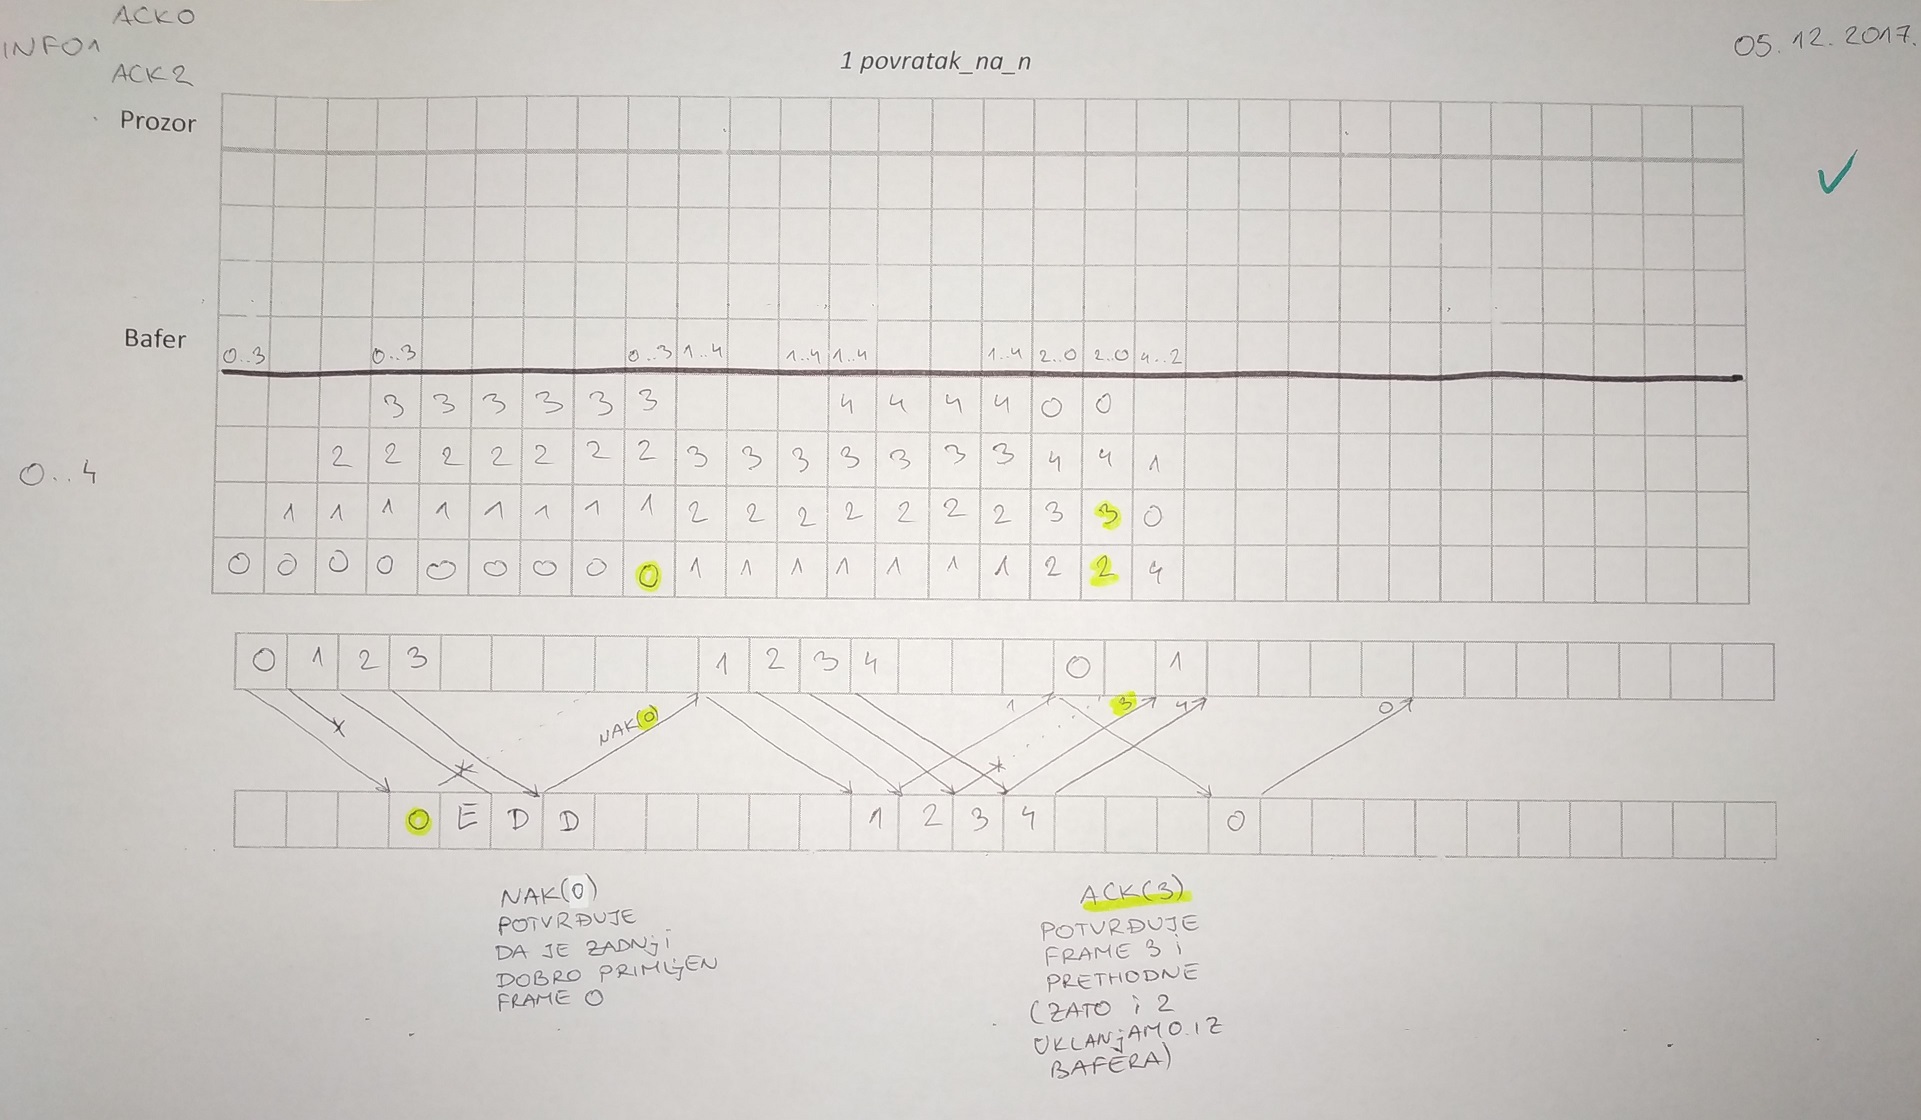 ACK0
INFO1
ACK2
1 povratak_na_n
05.12.2017.
Prozor
Bafer
0..3 0..3 0..3 1..4 1..4 1..4 1..4 2..0 2..0 4..2
3 3 3 3 3 3 4 4 4 4 0 0
0..4
2 2 2 2 2 2 2 3 3 3 3 3 3 3 4 4 1
1 1 1 1 1 1 1 1 2 2 2 2 2 2 2 3 3 0
0 0 0 0 0 0 0 0 0 1 1 1 1 1 1 1 2 2 4
0 1 2 3 1 2 3 4 0 1
NAK(0) 1 3 4 0
0 E D D 1 2 3 4 0
NAK(0)
POTVRĐUJE
DA JE ZADNJI
DOBRO PRIMLJEN
FRAME 0
ACK(3)
POTVRĐUJE
FRAME 3 i
PRETHODNE
(ZATO i 2
UKLANJAMO IZ
BAFERA)